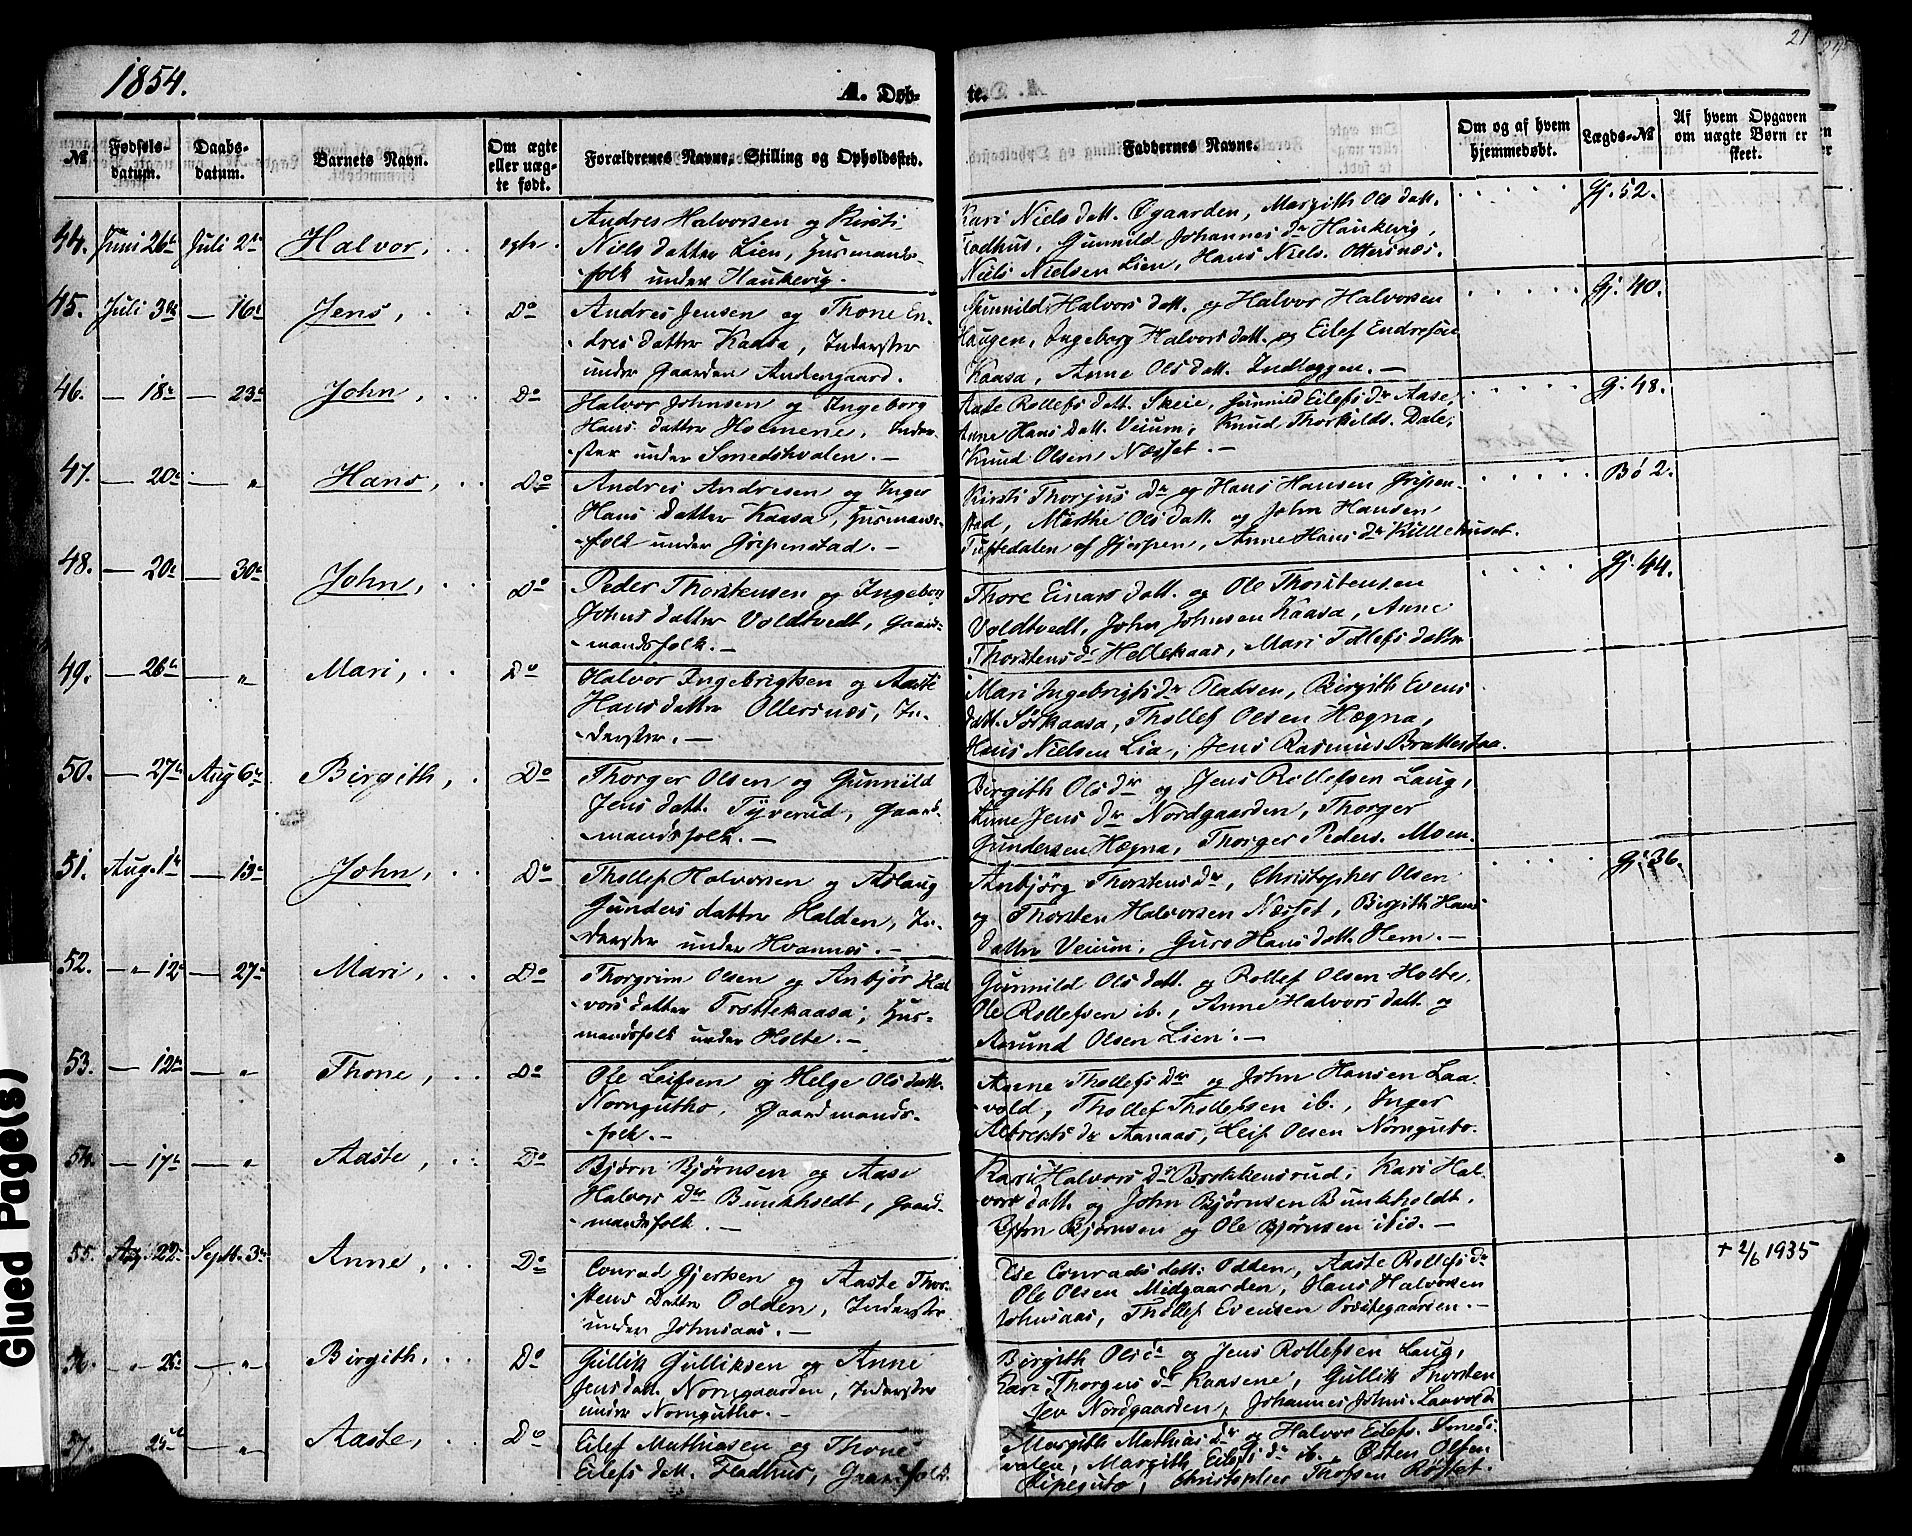 1854.
A. Døb-
te.
21
№
Fødsels-
datum.
Daabs-
datum.
Barnets Navn.
Om ægte
eller uæg-
te født.
Forældrenes Navne, Stilling og Opholdssted.
Faddernes Navne.
Om og af hvem
hjemmedøbt.
Lægds-№
Af hvem Opgaven
om uægte Børn er
skeet.
44. Juni 26de Juli 2de Halvor, . . egte.
Andres Halvorsen og Kirsti
Niels datter Lien, Husmands-
-folk under Haukevig.
Kari Niels datt. Øgaarden, Margith Ols datt.
Fladhus, Gunnild Johannes dr Haukevig,
Niels Nielsen Lien, Hans Niels. Ottersnæs.
Gj. 52.
45. Juli 3die — 16de Jens, . . Do
Andres Jensen og Thone En-
dres datter Kaasa, Inderster
under Gaarden Andengaard.
Gunnild Halvors datt. og Halvor Halvorsen
Haugen, Ingeborg Halvors datt. og Eilef Endresen
Kaasa, Anne Ols datt. Indlæggen. —
Gj. 40.
46. — 18de — 23de John, . . Do
Halvor Johnsen og Ingeborg
Hans datter Holmene, Inder-
ster under Smedshvalen. —
Aaste Rollefs datt. Skeie, Gunnild Eilefs dr Aase,
Anne Hans datt. Veium, Knud Thorkilds. Dale,
Knud Olsen Næsset. —
Gj. 48.
47. — 20de — " Hans, . . Do
Andres Andresen og Inger
Hans datter Kaasa, Husmands-
-folk under Gripenstad. —
Kirsti Thorjus dr og Hans Hansen Gripen-
stad, Marthe Ols datt. og John Hansen
Tuftedalen af Gjerpen, Anne Hans dr Kullehuset.
Bø 2.
48. — 20de — 30de John, . . Do
Peder Thorstensen og Ingeborg
Johns datter Voldtvedt, Gaard-
mandsfolk. —
Thore Einars datt. og Ole Thorstensen
Voldtvedt, John Johnsen Kaasa, Anne
Thorstens dr Hellekaas, Mari Tollefs datter
Gj. 44.
49. — 26de — " Mari, . . Do
Halvor Ingebrigtsen og Aaste
Hans datter Ottersnæs, In-
derster. —
Mari Ingebrigts dr Olabsen, Birgith Evens
datt. Sørkaasa, Thollef Olsen Hægna,
Hans Nielsen Lia, Jens Rasmus Brattestaa.
50. — 27de Aug 6te Birgith, . Do
Thorger Olsen og Gunnild
Jens datt. Tyverud, Gaard-
mandsfolk. —
Birgith Ols dr og Jens Rollefsen Laug,
Anne Jens dr Nordgaarden, Thorger
Gundersen Hægna, Thorger Peders. Moen.
51. Aug. 1te — 13de John, . . Do
Thollef Halvorsen og Aslaug
Gunders datter Halden, In-
derster under Hvannes. —
Anbjörg Thorstens dr, Christopher Olsen
og Thorsten Halvorsen Næsset, Birgith Hans
datter Veium, Guro Hans datt. Hem. —
Gj. 36.
52. — " 12te — 27de Mari, . . Do
Thorgrim Olsen og Anbjør Hal-
vors datter Trøttekaasa, Hus-
mandsfolk under Holte. —
Gunnild Ols datt. og Rollef Olsen Holte,
Ole Rollefsen ib., Anne Halvors datt. og
Asmund Olsen Lien. —
53. — 12te — " Thone, . . Do
Ole Leifsen og Helge Ols datt.
Nornqutho, Gaardmands-
folk. —
Anne Thollefs dr og John Hansen Laa-
vold, Thollef Thollefsen ib., Inger
Albrekts dr Aanaas, Leif Olsen Norngutho.
54. — 17de — " Aaste, . . Do
Bjørn Bjørnsen og Aase
Halvors dr Bunkholdt, Gaard-
-mandsfolk. —
Kari Halvors dr Brokkensrud, Kari Hal-
vors datt. og John Bjørnsen Bunkholdt,
Bjørn Bjørnsen og Ole Bjørnsen ibid. —
55. Ag. 22de Septb. 3de Anne, . . Do
Conrad Gjertsen og Aaste Thor-
stens datter Odden, Inderster
under Johnsaas. —
Else Conrads datt. Odden, Aaste Rollefs dr
Ole Olsen Midgaarden, Hans Halvorsen
Johnsaas, Thollef Evensen Præstegaarden. —
+ 2/6 1935
56. — " 25de — " Birgith, . . Do
Gullik Gulliksen og Anne
Jens datt. Norngaarden, Inderster
under Norngutho. —
Børgith Ols dr og Jens Rollefsen Laug,
Kari Thorgus dr Kaasene, Gullik Thorsten
sen Nordgaarden, Johannes Johns. Laavold
57. 25de — " Aaste, . . Do
Eilef Mathiasen og Thone
Eilefs datt. Fladhus, Gaardsfolk.
Margith Mathias dr og Halvor Eilefs. Smeds-
valen, Margith Eilefs dr ib. Otten Olsen
Ripegutø, Christopher Thofsen Røsttet.
Glued Page(s)